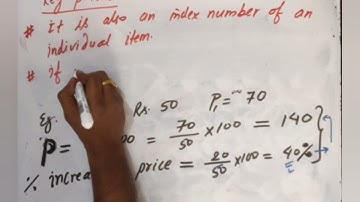 # It is also an index number of an
individual item.
# if
Eg. Rs. 50 P₁ = 70
P= 00 = 70/50 x100 = 140
% increa price = 20/50 x100 = 40%